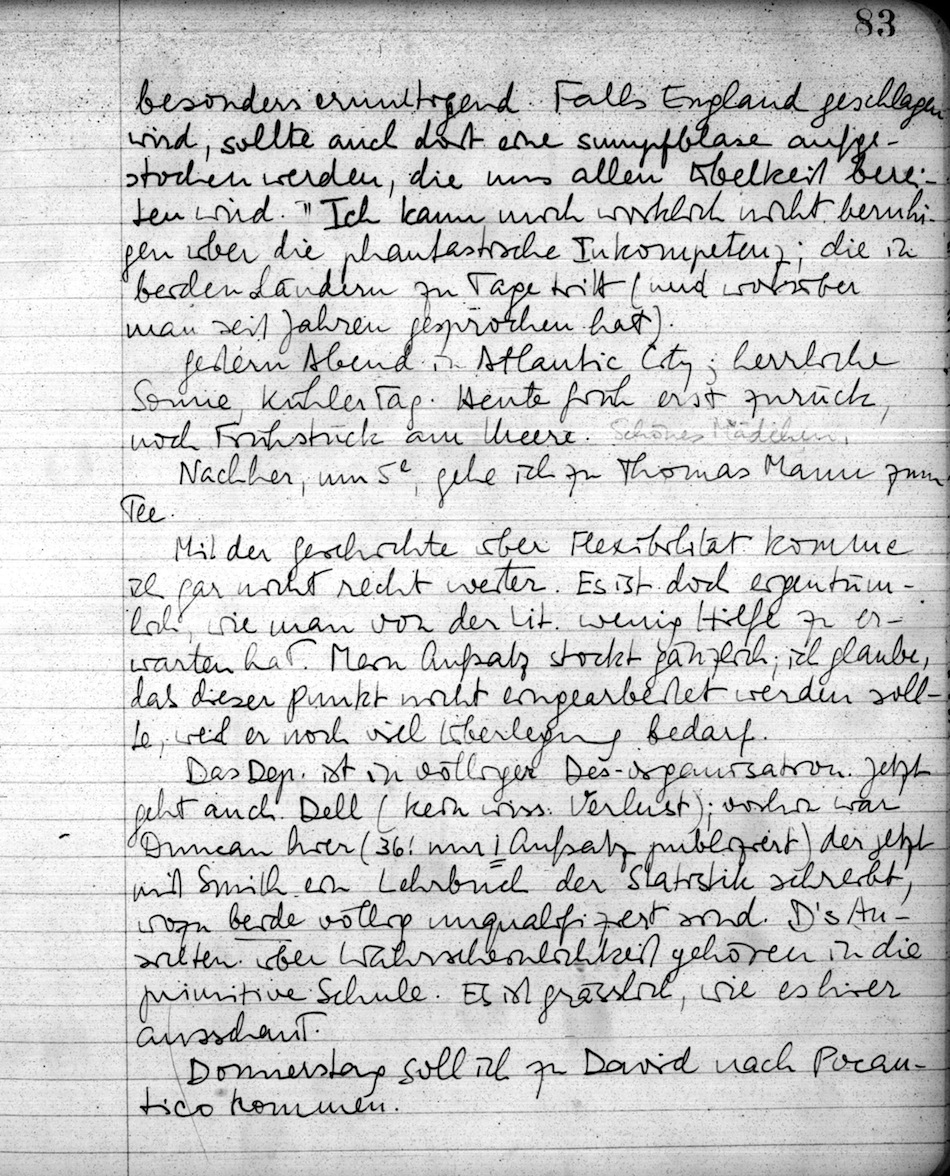 83
besonders ermutigend. Falls England geschlagen
wird, sollte auch dort eine Sumpfblase aufge-
stochen werden, die uns allen Übelkeit berei-
ten wird. " Ich kann mich wirklich nicht beruhi-
gen über die phantastische Inkompetenz; die in
beiden Ländern zu Tage tritt (und worüber
man seit Jahren gesprochen hat).
Gestern Abend in Atlantic City; herrliche
Sonne, kühler Tag. Heute früh erst zurück,
noch Frühstück am Meere. Schönes Mädchen.
Nachher, um 5ʰ, gehe ich zu Thomas Mann zum
Tee.
Mit der Geschichte über Flexibilität komme
ich gar nicht recht weiter. Es ist doch eigentüm-
lich, wie man von der Lit. wenig Hilfe zu er-
warten hat. Mein Aufsatz stockt gänzlich; ich glaube,
das dieser Punkt nicht eingearbeitet werden soll-
te, weil er noch viel Überlegung bedarf.
Das Dep. ist in völliger Des-organisation. Jetzt
geht auch Dell (kein wiss. Verlust); vorhin war
Duncan hier (36! nur 1 Aufsatz publiziert) der jetzt
mit Smith ein Lehrbuch der Statistik schreibt,
wozu beide völlig unqualifiziert sind. D's An-
sichten über Wahrscheinlichkeit gehören in die
primitive Schule. Es ist grässlich, wie es hier
ausschaut.
Donnerstag soll ich zu David nach Pocan-
tico kommen.